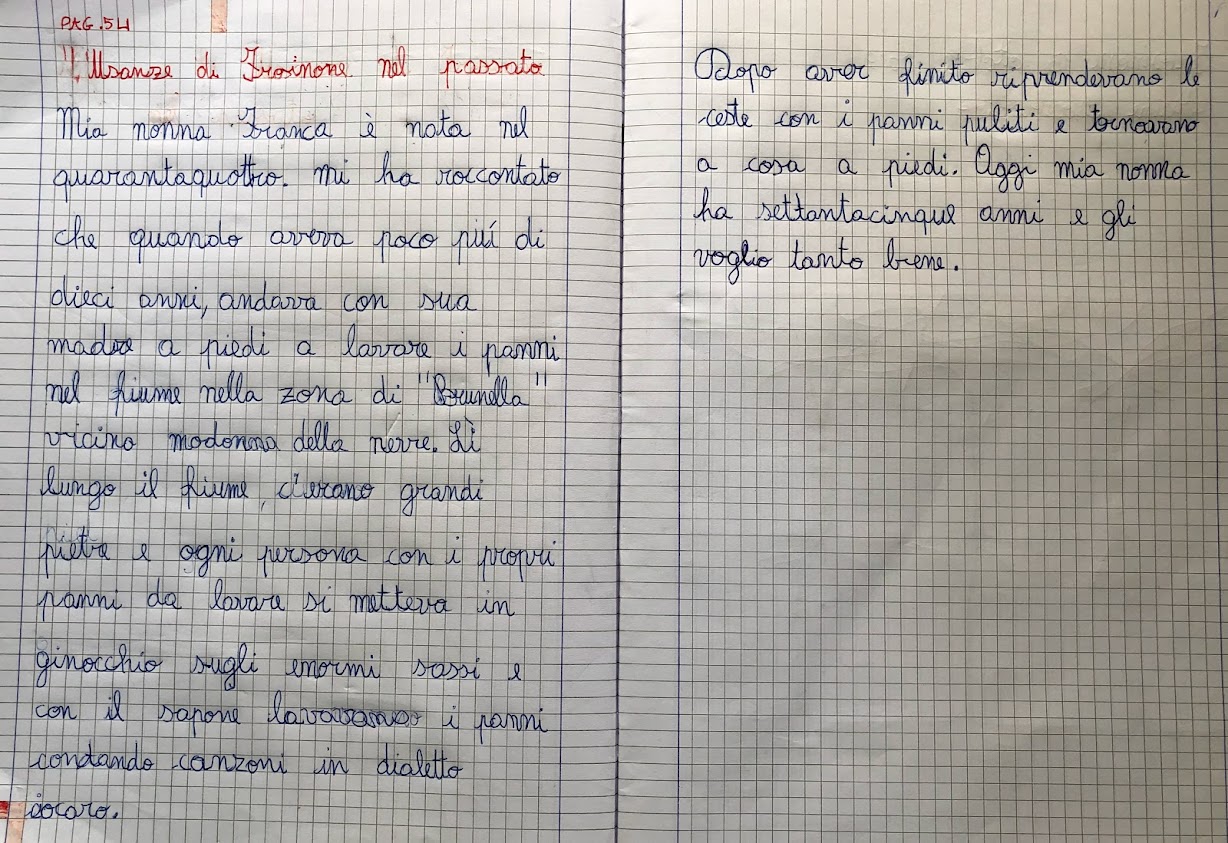 PAG. 54
"Usanze di Frosinone nel passato
Mia nonna Franca è nata nel
quarantaquattro. mi ha raccontato
che quando aveva poco piú di
dieci anni, andava con sua
madre a piedi a lavare i panni
nel fiume nella zona di "Brunella"
vicino madonna della neve. Lì
lungo il fiume, c'erano grandi
pietre e ogni persona con i propri
panni da lavare si metteva in
ginocchio sugli enormi sassi e
con il sapone lavavano i panni
cantando canzoni in dialetto
Dopo aver finito riprendevano le
ceste con i panni puliti e tornavano
a casa a piedi. Oggi mia nonna
ha settantacinque anni e gli
voglio tanto bene.